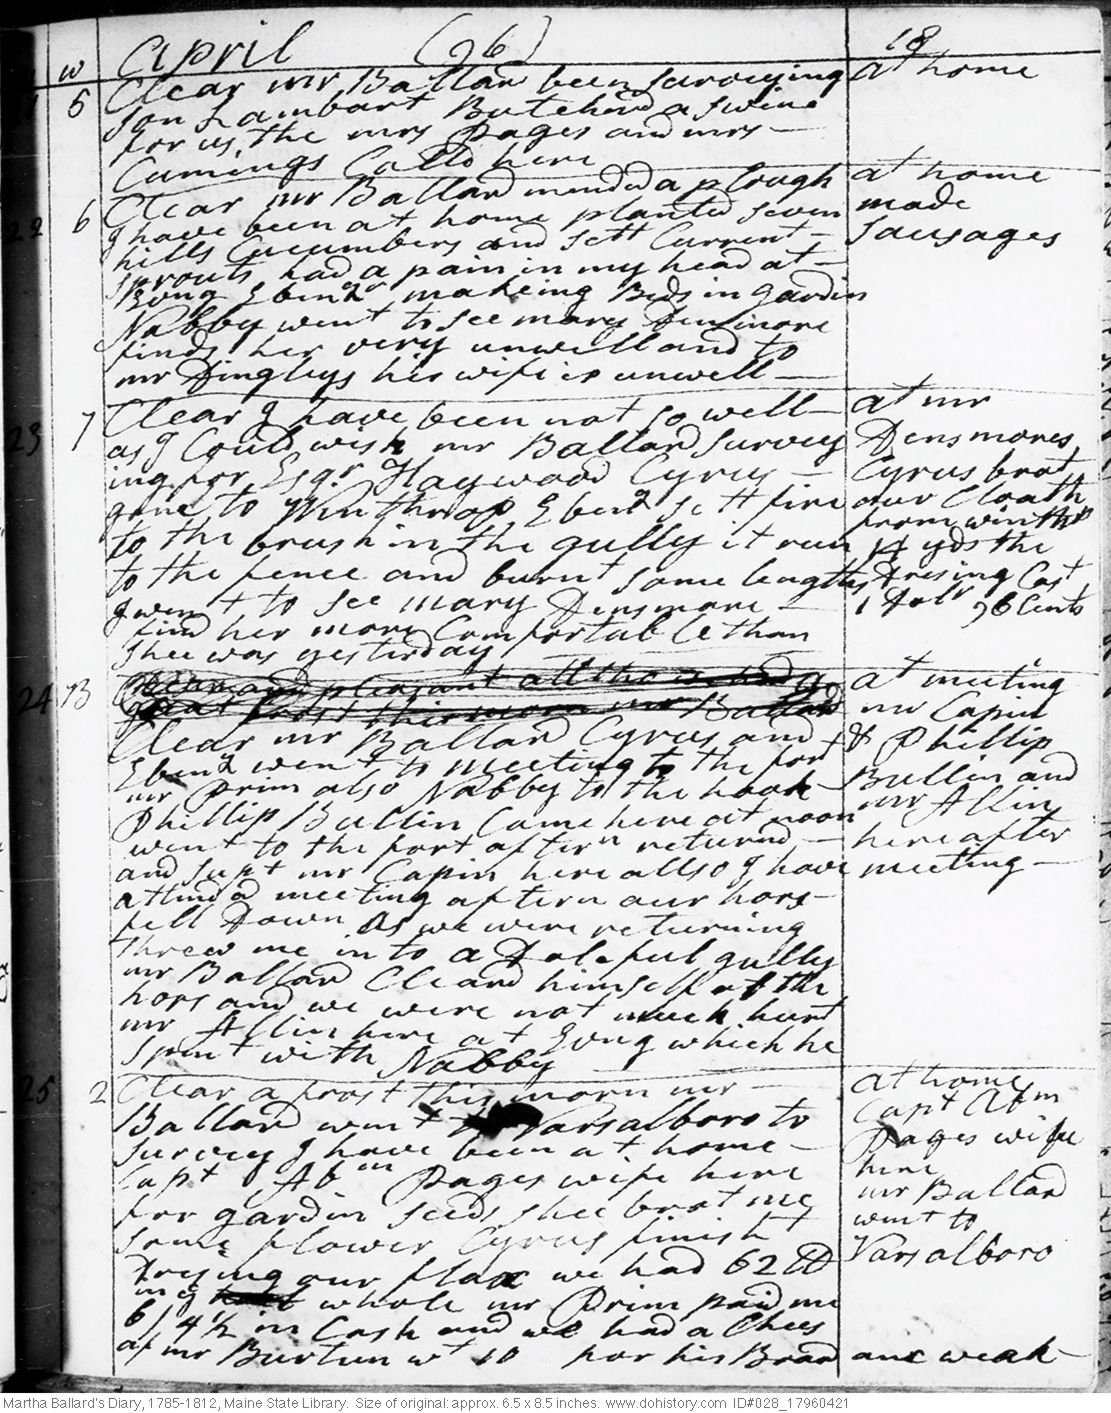 April (96) 18
w
21 5 Clear mr Ballard been Surveying at home
for Lambart Butcherd a swine
for us, the mrs Pages and mrs
Cumings Calld here
22 6 Clear mr Ballard mended a plough at home
I have been at home planted seven made
hills Cucumbers and sett Current Sausages
sprouts, had a pain in my head at
Evng Ebenzr makeing Beds in gardin
Nabby went to see mary Densmore
finds her very unwell and to
mr Dingleys his wife is unwell
23 7 Clear I have been not so well at mr
as I Could wish mr Ballard survey Densmores,
ing for Esqr Haywood Cyrus Cyrus brot
gone to Winthrop Eben sett fire our Cloath
to the brush in the gully it run from winthp
to the fence and burnt some lengths 14 yds the
I went to see mary Densmore Dresing Cost
find her more Comfortable than 1 Dolr 96 Cents
shee was yesterday
24 B Clear and pleasant at meeting
great frost this morn mr Ballard mr Capin
Clear mr Ballard Cyrus and & Phillip
Ebenz went to meeting to the fort Bullin and
mr Prim also Nabby to the hook mr Allin
Phillip Bullin Came here at noon here after
went to the fort aftern returned meeting
and supt mr Capin here allso I have
attind a meeting aftern our hors
fell Down As we were returning
threw me into a Doleful gully
mr Ballard Cleard himself of the
hors and we were not much hurt
mr Allin here at Evng which he
spent with Nabby
25 2 Clear a frost this morn mr at home
Ballard went to Varsalboro to Capt Abm
survey I have been at home Pages wife
Capt Abm Pages wife here here
for gardin seeds, shee brot me mr Ballard
some flower Cyrus finisht went to
Dresing our flax we had 62 lb Varsalboro
in ye whole mr Prim paid me
6/ 4½ in Cash and we had a Chees
of mr Burtun wt 10 for his Board one weak
Martha Ballard's Diary, 1785-1812, Maine State Library. Size of original: approx. 6.5 x 8.5 inches. www.dohistory.com ID#028_17960421